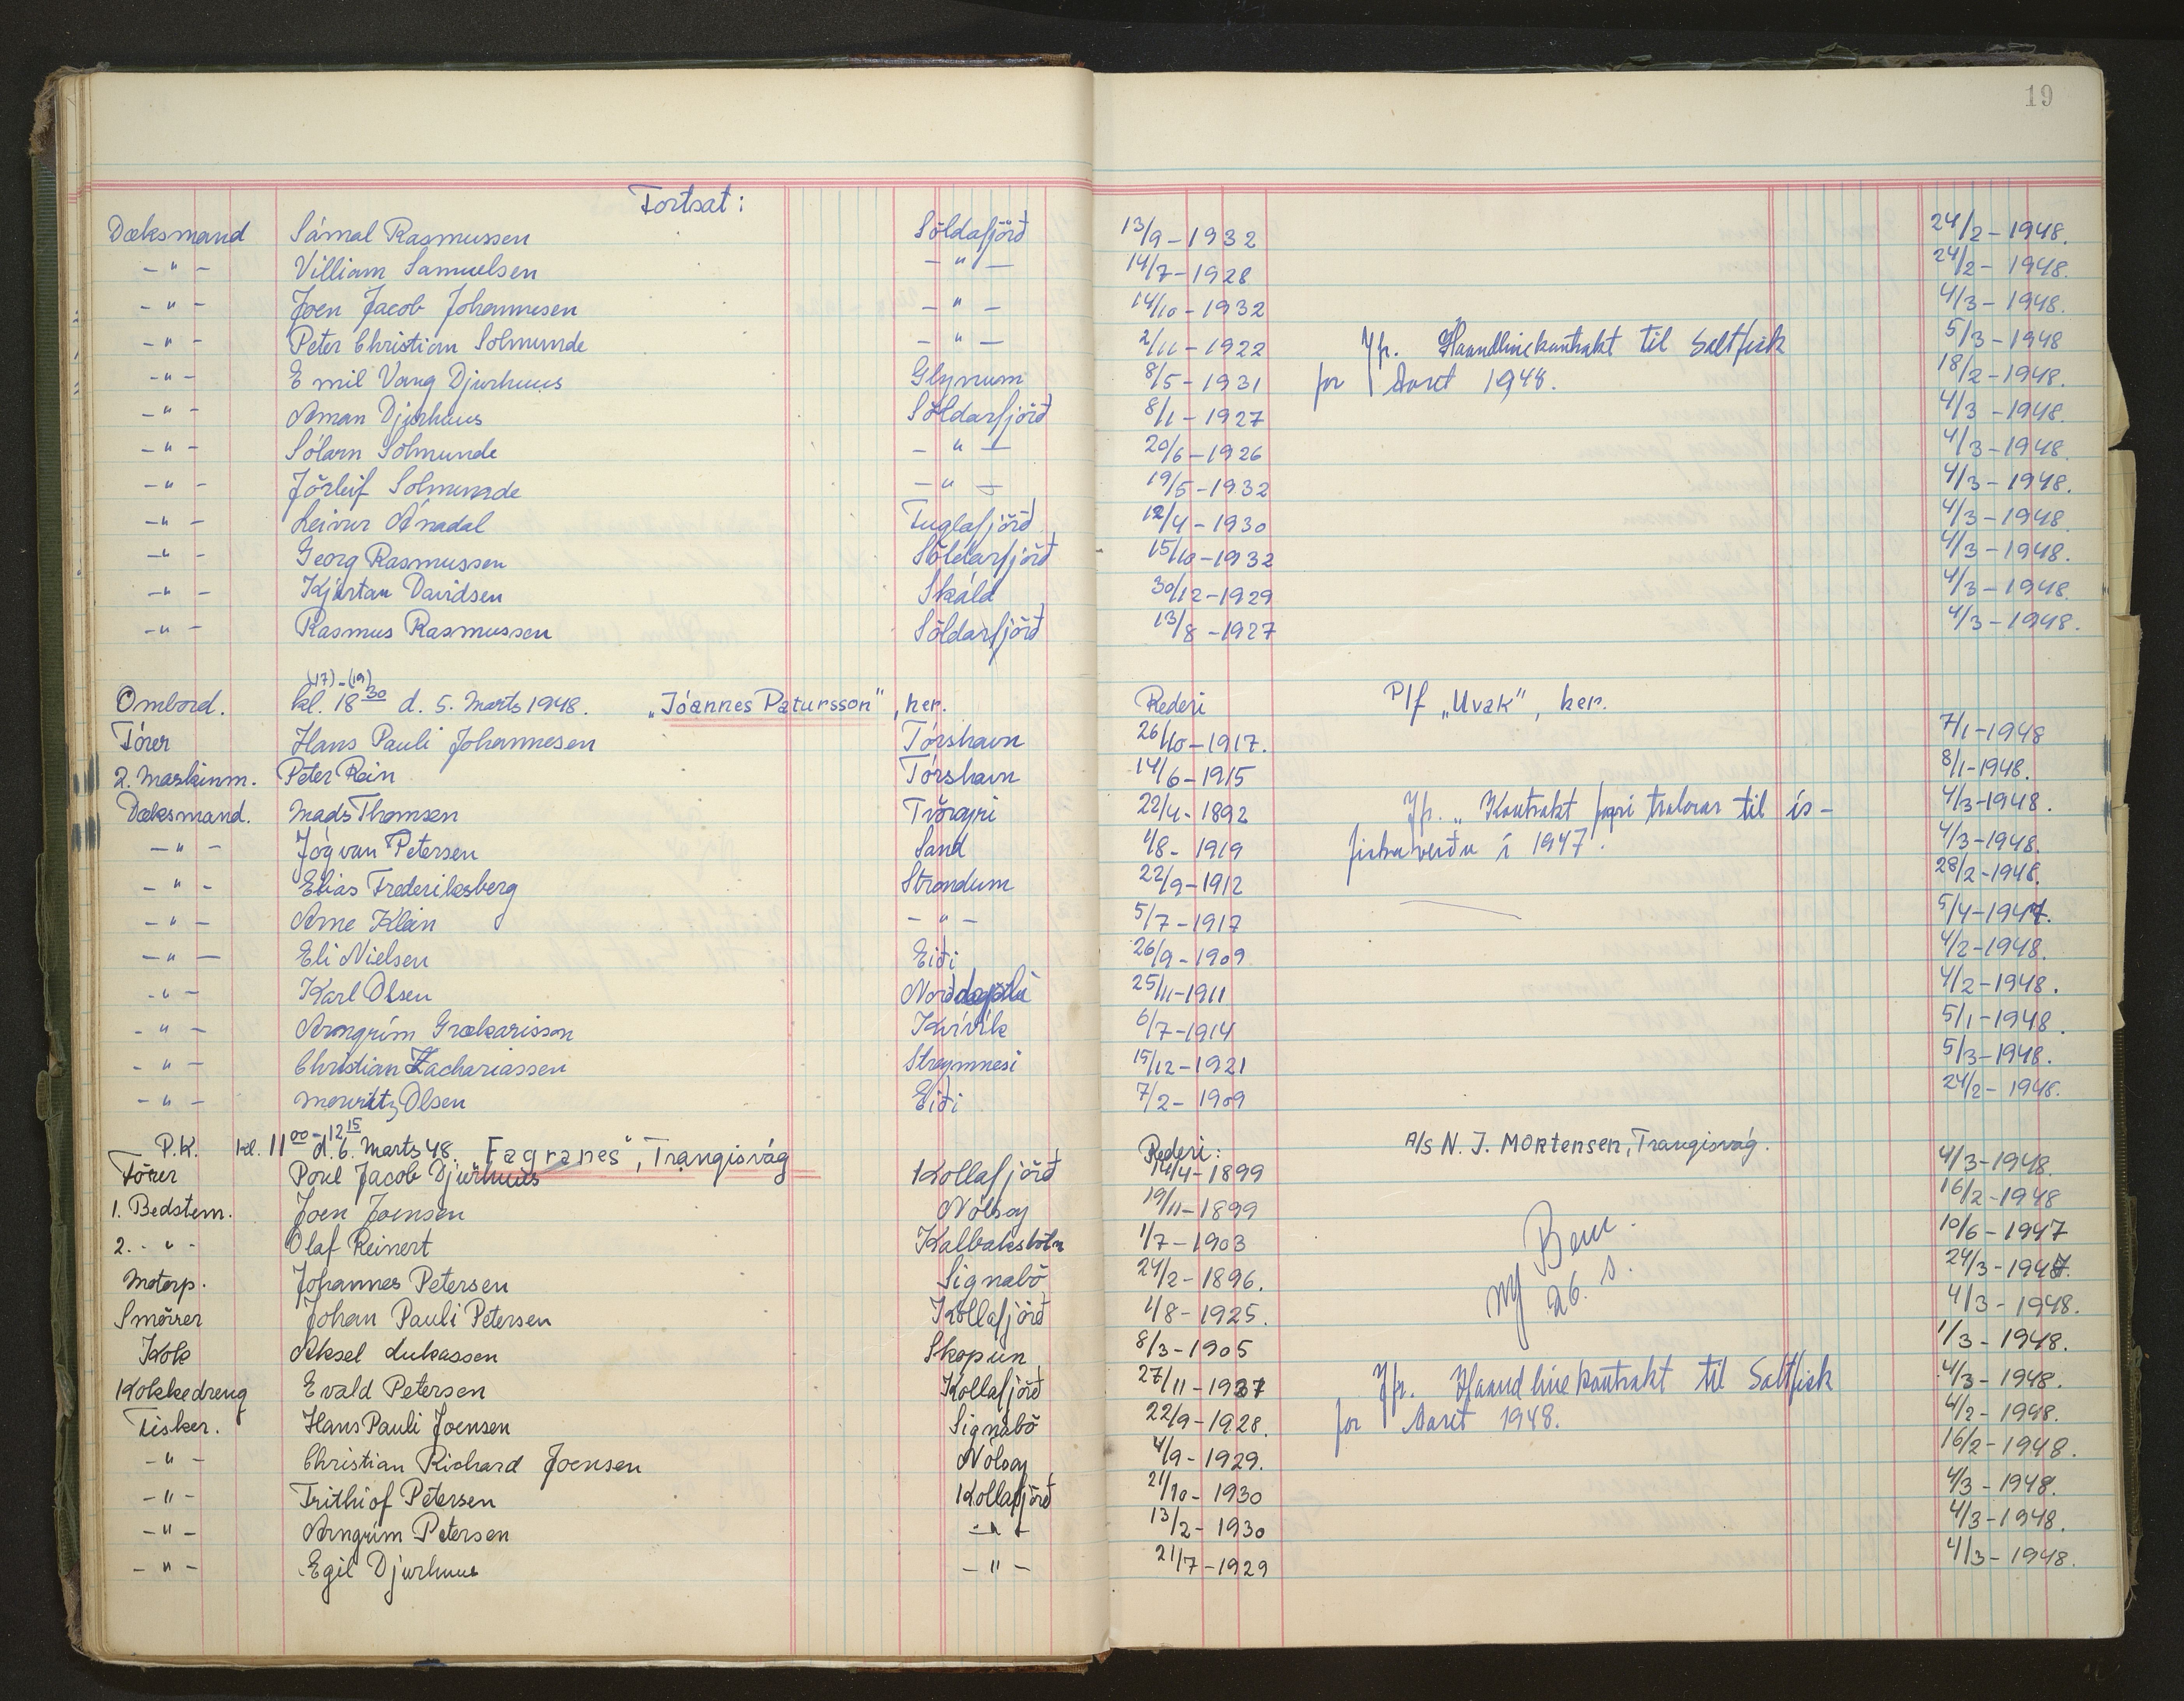 19
Fortsat:
Dæksmand Sámal Rasmussen Söldafjörð 13/9-1932 24/2-1948.
-"- Villiam Samuelsen -"- 14/7-1928 24/2-1948.
-"- Joen Jacob Johannesen -"- 14/10-1932 4/3-1948.
-"- Peter Christian Solmunde -"- 2/11-1922 Jfr. Haandlinekontrakt til Saltfisk 5/3-1948
-"- Emil Vang Djurhuus Glynum 8/5-1931 for Aaret 1948. 18/2-1948.
-"- Aman Djurhuus Söldarfjörð 8/1-1927 4/3-1948.
-"- Sólarn Solmunde -"- 20/6-1926 4/3-1948.
-"- Jörleif Solmunde -"- 19/5-1932 4/3-1948.
-"- Leivur Ánadal Fuglafjörð 12/4-1930 4/3-1948.
-"- Georg Rasmussen Söldarfjörð 15/10-1932 4/3-1948.
-"- Kjartan Davidsen Skáld 30/12-1929 4/3-1948.
-"- Rasmus Rasmussen Söldarfjörð 13/8-1927 4/3-1948.
(17)-(19)
Ombord. kl. 18 30 d. 5. Marts 1948. „Jóannes Patursson", her. Rederi P/f „Uvak", her.
Förer Hans Pauli Johannesen Tórshavn 26/10-1917. 7/1-1948
2. Maskinm. Peter Rein Tórshavn 14/6-1915 8/1-1948.
Dæksmand. Mads Thomsen Tvöroyri 22/4-1892 Jfr. „Kontrakt fyri tralarar til ís- 4/3-1948.
-"- Jógvan Petersen Sand 1/8-1919 fiskaveiðu í 1947. 4/3-1948.
-"- Elias Frederiksberg Strondum 22/9-1912 28/2-1948.
-"- Arne Klein -"- 5/7-1917 5/4-1947.
-"- Eli Nielsen Eiði 26/9-1909 4/2-1948.
-"- Karl Olsen 25/11-1911 4/2-1948.
-"- Arngrím Grækarisson Kvívík 6/7-1914 5/1-1948.
-"- Christian Zachariassen Streymnesi 15/12-1921 5/3-1948.
-"- Mouritz Olsen Eiði 7/2-1909 24/2-1948.
P.K. kl. 11 00 - 12 15 d. 6. Marts 48. „Fagranes", Trangisvág Rederi: A/S N. J. Mortensen, Trangisvág.
Förer Poul Jacob Djurhuus Kollafjörð 14/4-1899 4/3-1948.
1. Bedstem. Joen Joensen Nólsoy 19/11-1899 16/2-1948
2. -"- Olaf Reinert Kalbaksbotn 1/7-1903 Bem. 10/6-1947
Motorp. Johannes Petersen Signabö 24/2-1896. ny 26. s. 24/3-1947.
Smörer Johan Pauli Petersen Kollafjörð 1/8-1925. 4/3-1948.
Kok Aksel Lukassen Skopun 8/3-1905 1/3-1948.
Kokkedreng Evald Petersen Kollafjörð 27/11-1937 Jfr. Haandlinekontrakt til Saltfisk 4/3-1948.
Fisker. Hans Pauli Joensen Signabö 22/9-1928. for Aaret 1948. 4/2-1948.
-"- Christian Richard Joensen Nólsoy 4/9-1929. 16/2-1948.
-"- Frithiof Petersen Kollafjörð 21/10-1930 4/3-1948.
-"- Arngrím Petersen -"- 13/2-1930 4/3-1948.
-"- Egil Djurhuus -"- 21/7-1929 4/3-1948.